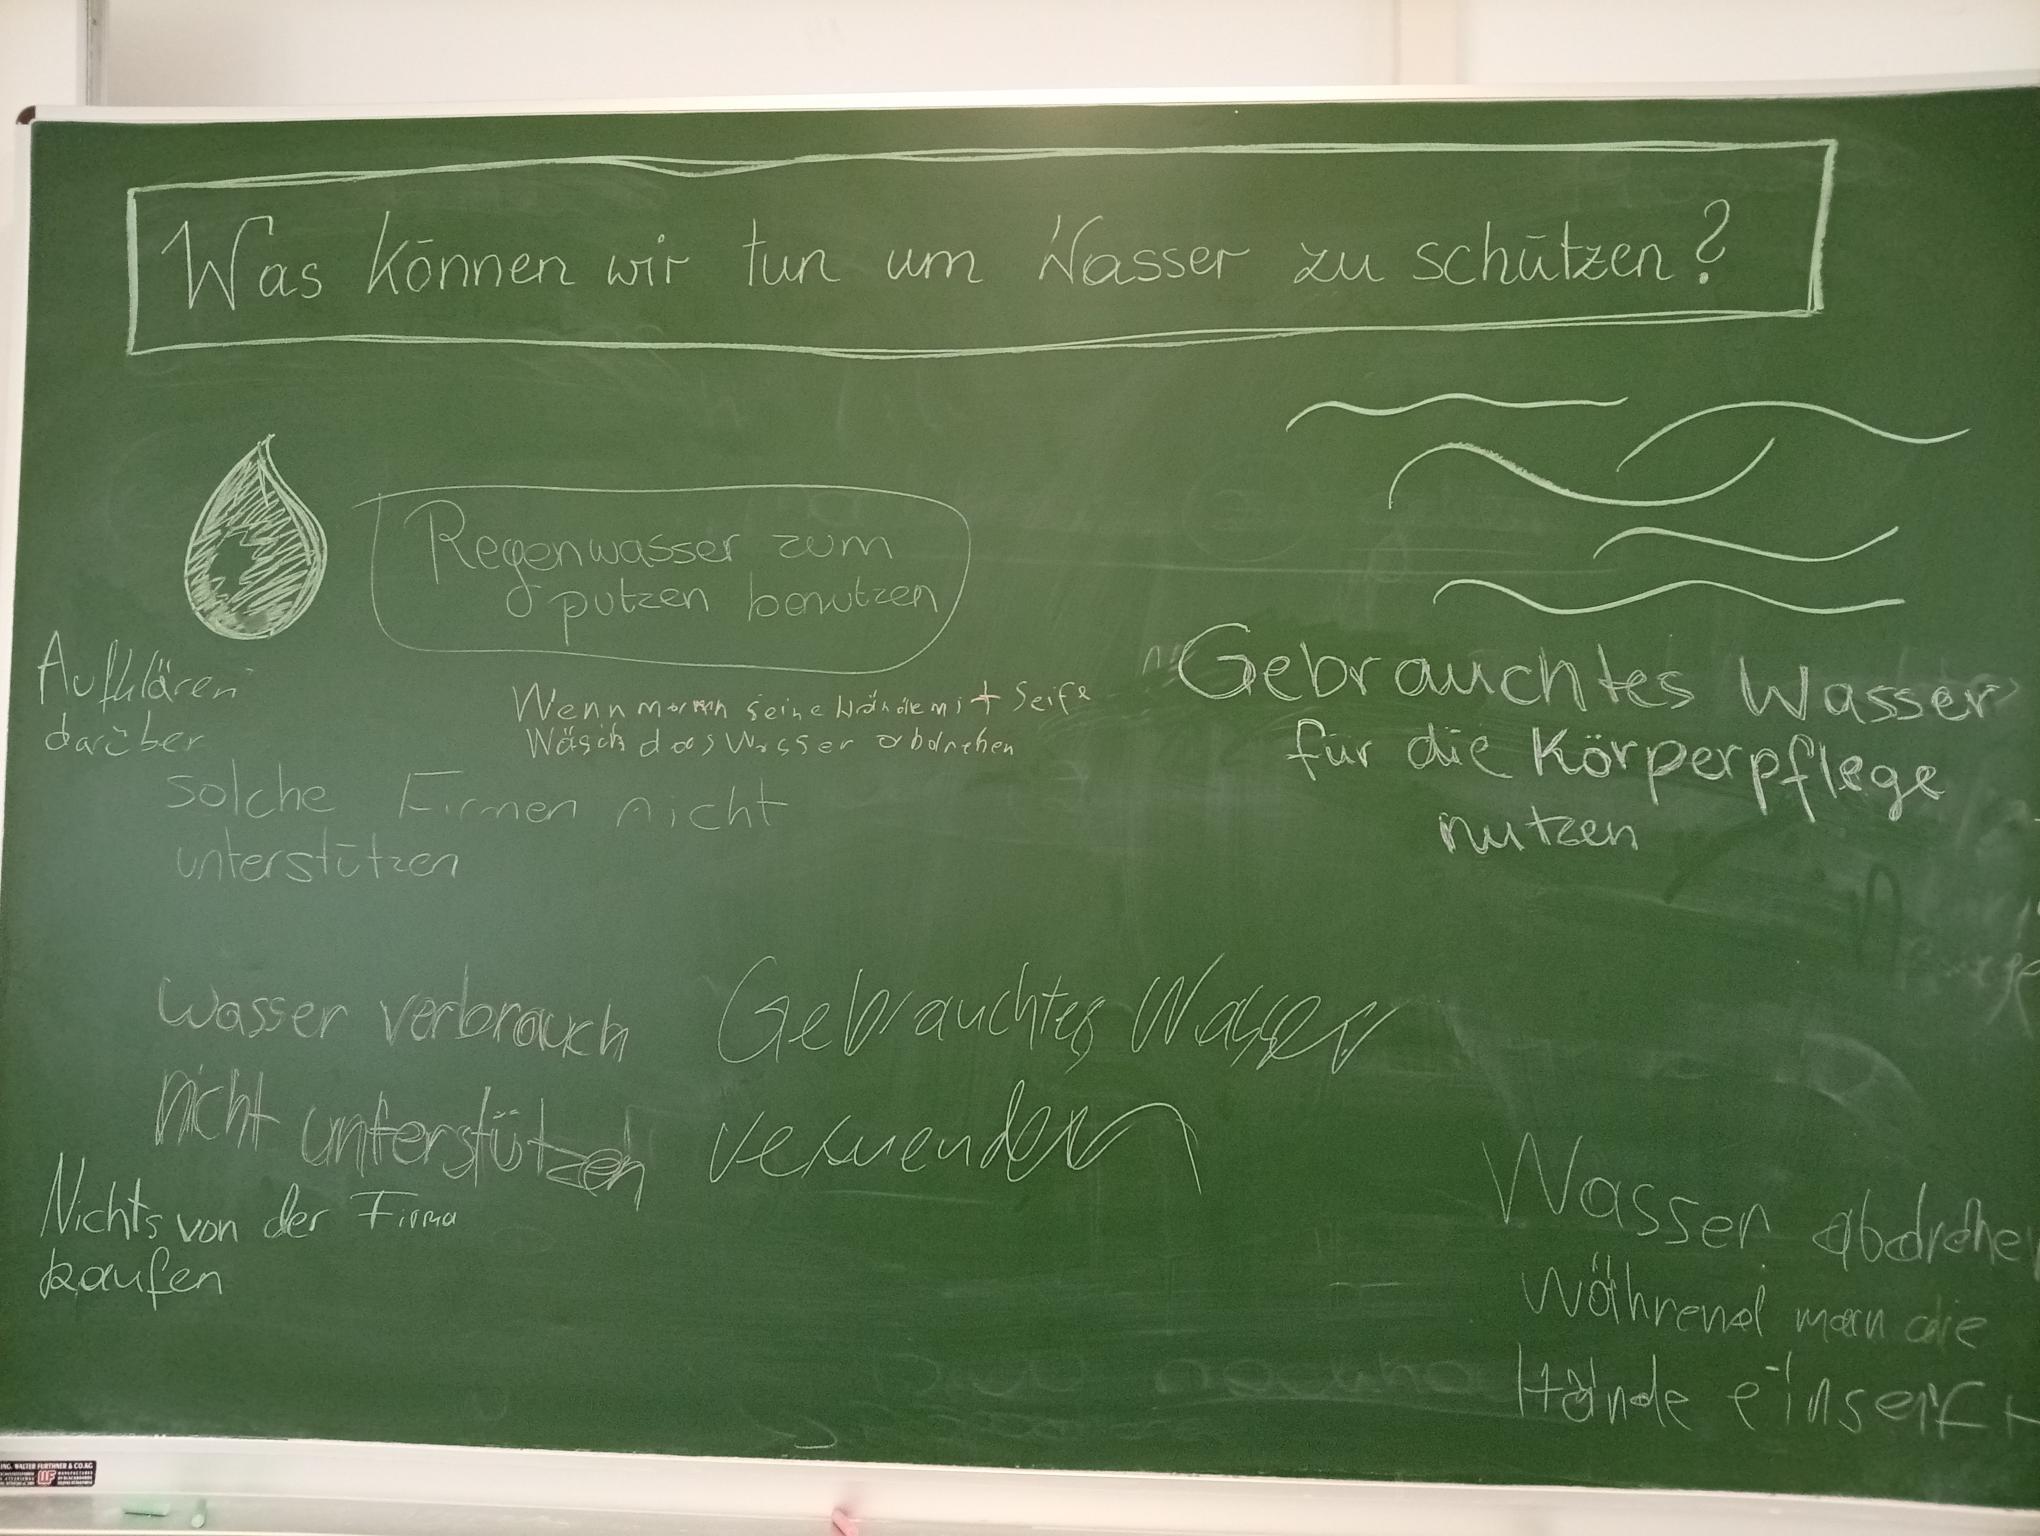 Was können wir tun um Wasser zu schützen?
Regenwasser zum
putzen benutzen
Aufklären
darüber
Wenn man seine Hände mit Seife
Wäsch das Wasser abdrehen
Gebrauchtes Wasser
für die Körperpflege
nutzen
solche Firmen nicht
unterstützen
Wasser verbrauch
nicht unterstützen
Gebrauchtes Wasser
verwenden
Nichts von der Firma
kaufen
Wasser abdrehen
während man die
Hände einseift
ING. WALTER FURTHNER & CO.AG
WF